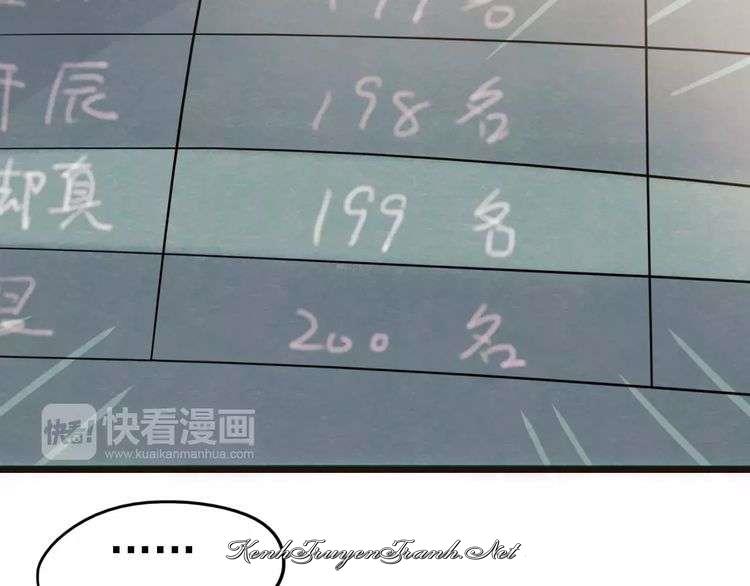 197名
辰 198名
却真 199名
旦 200名
快看! 快看漫画
www.kuaikanmanhua.com
······
KenhTruyenTranh.Net